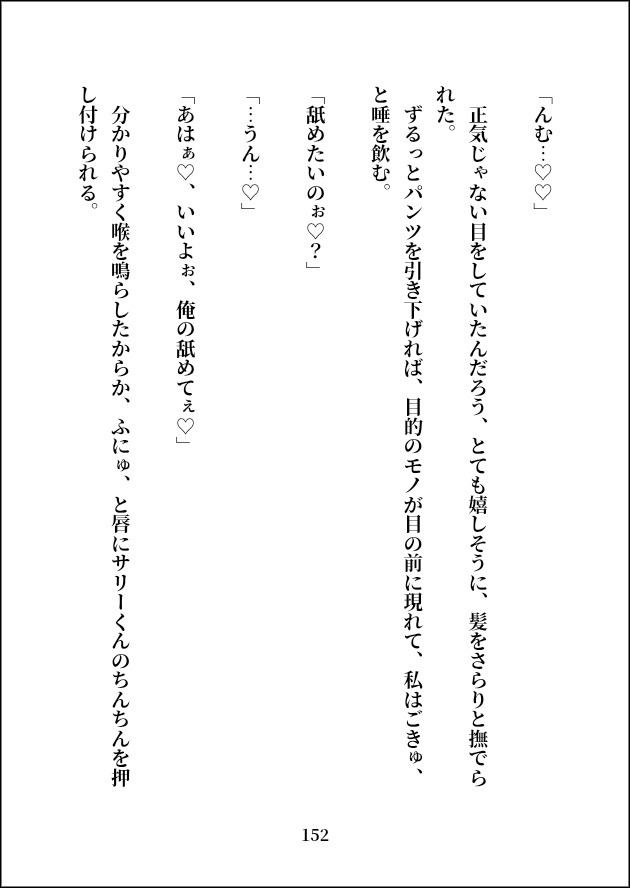 「んむ…♡♡」
正気じゃない目をしていたんだろう、とても嬉しそうに、髪をさらりと撫でら
れた。
ずるっとパンツを引き下げれば、目的のモノが目の前に現れて、私はごきゅ、
と唾を飲む。
「舐めたいのぉ♡？」
「…うん…♡」
「あはぁ♡、いいよぉ、俺の舐めてぇ♡」
分かりやすく喉を鳴らしたからか、ふにゅ、と唇にサリーくんのちんちんを押
し付けられる。
152